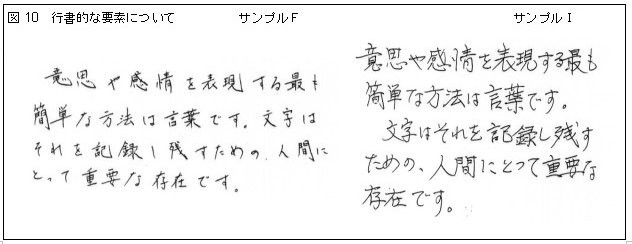 図10 行書的な要素について サンプルF サンプルI
意思や感情を表現する最も
簡単な方法は言葉です。文字は
それを記録し残すための、人間に
とって重要な存在です。
意思や感情を表現する最も
簡単な方法は言葉です。
文字はそれを記録し残す
ための、人間にとって重要な
存在です。